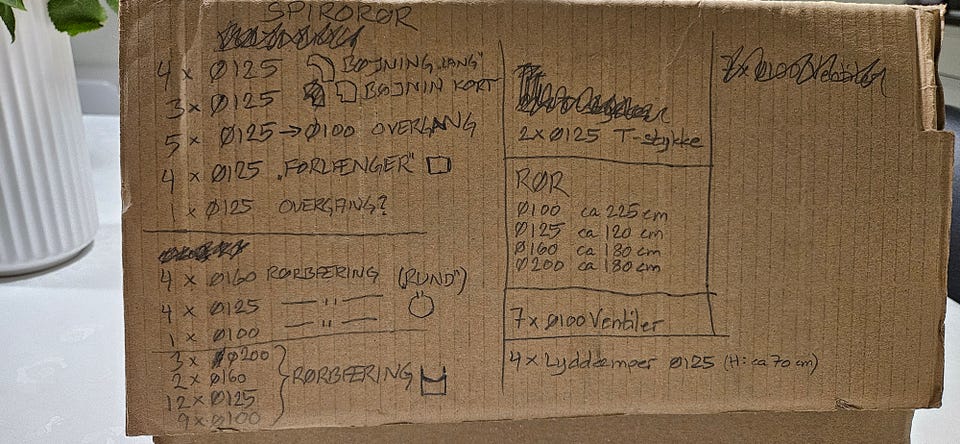 SPIRORØR
4 x Ø125 BØJNING „LANG"
3 x Ø125 BØJNIN KORT
5 x Ø125 → Ø100 OVERGANG
4 x Ø125 „FORLÆNGER"
1 x Ø125 OVERGANG?
4 x Ø160 RØRBÆRING („RUND")
4 x Ø125 — " —
1 x Ø100 — " —
3 x Ø200
2 x Ø160
12 x Ø125
9 x Ø100
RØRBÆRING
2 x Ø125 T-stykke
RØR
Ø100 ca 225 cm
Ø125 ca 120 cm
Ø160 ca 180 cm
Ø200 ca 180 cm
7 x Ø100 Ventiler
4 x Lyddæmper Ø125 (H: ca 70 cm)
7 x Ø100 Ventiler